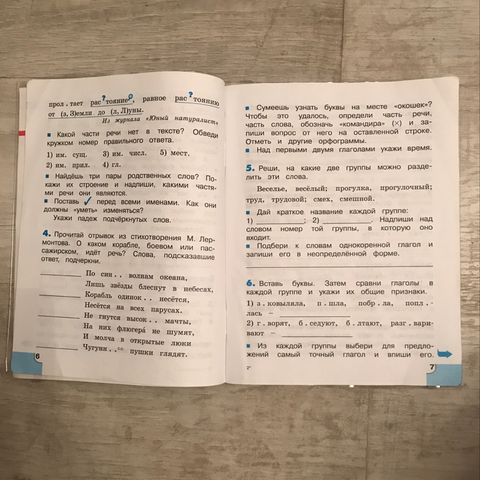 прол . тает рас ? тояние, равное рас ? тоянию
от (з, З)емли до (л, Л)уны.
Из журнала «Юный натуралист»
Какой части речи нет в тексте? Обведи
кружком номер правильного ответа.
1) им. сущ. 3) им. числ. 5) мест.
2) им. прил. 4) гл.
Найдёшь три пары родственных слов? По-
кажи их строение и надпиши, какими частя-
ми речи они являются.
Поставь ✓ перед всеми именами. Как они
должны «уметь» изменяться?
Укажи падеж подчёркнутых слов.
4. Прочитай отрывок из стихотворения М. Лер-
монтова. О каком корабле, боевом или пас-
сажирском, идёт речь? Слова, подсказавшие
ответ, подчеркни.
По син . . волнам океана,
Лишь звёзды блеснут в небесах,
Корабль одинок . . несётся,
Несётся на всех парусах.
Не гнутся высок . . мачты,
На них флюгера́ не шумят,
И молча в открытые люки
Чугунн . . пушки глядят.
6
Сумеешь узнать буквы на месте «окошек»?
Чтобы это удалось, определи часть речи,
часть слова, обозначь «командира» (×) и за-
пиши вопрос от него на оставленной строке.
Отметь и другие орфограммы.
Над первыми двумя глаголами укажи время.
5. Реши, на какие две группы можно разде-
лить эти слова.
Веселье, весёлый; прогулка, прогулочный;
труд, трудовой; смех, смешной.
Дай краткое название каждой группе:
1) ; 2) . Надпиши над
словом номер той группы, в которую оно
входит.
Подбери к словам однокоренной глагол и
запиши его в неопределённой форме.
6. Вставь буквы. Затем сравни глаголы в
каждой группе и укажи их общие признаки.
1) з . ковыляла, п . шла, побр . ла, попл . -
лась –
2) г . ворят, б . седуют, б . лтают, разг . вари-
вают –
Из каждой группы выбери для предло-
жений самый точный глагол и впиши его.
7